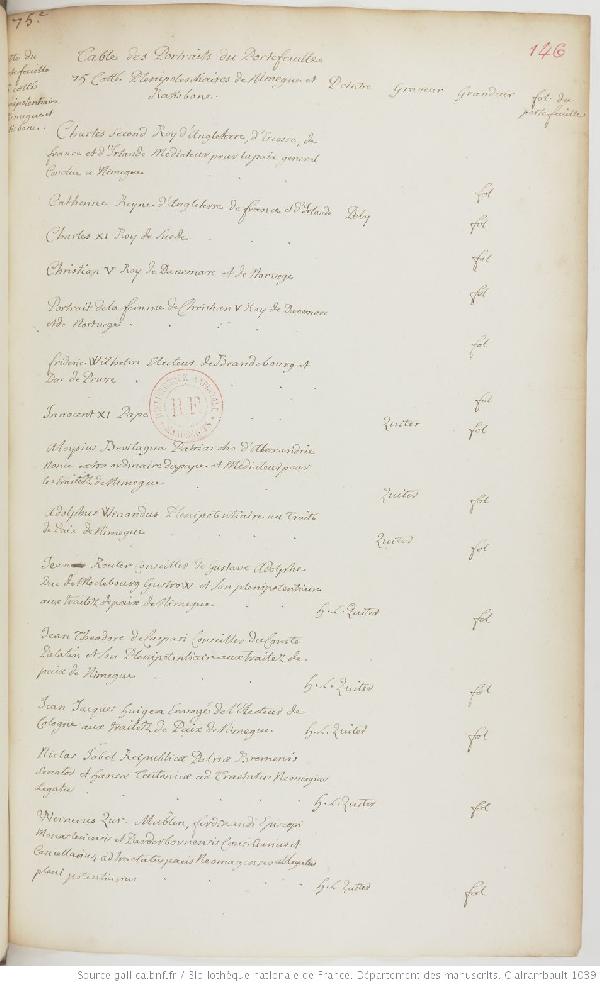 75.e
146
Table des Portraits du Portefeuille
75 Cotté Plenipotentiaires de Nimegue et
Ratisbone.
Peintre Graveur Grandeur fol. du
portefeuille
Charles second Roy d'Angleterre, d'Ecosse, de
france et d'Irlande Mediateur pour la paix general
Conclue a Nimegue
fol
Catherine Reyne d'Angleterre de france et d'Irlande Lely
fol
Charles XI Roy de Suede
fol
Christian V Roy de Danemarc et de Norvege
fol
Portrait de la femme de Christian V Roy de Danemarc
et de Norvege
fol
frideric Wilhelm Electeur de Brandebourg et
Duc de Prusse
fol
Innocent XI Pape
Quiter fol
Aloysius Bevilaqua Patriarche d'Alexandrie
Nonce extraordinaire du pape et Mediateur pour
les traitéz de Nimegue
Quiter fol
Adolphus Plenipotentiaire au Traité
de Paix de Nimegue
Quiter fol
Jean Reuter Conseiller de Gustave Adolphe
Duc de Meclebourg Gustrow et son plenipotentiaire
aux traitéz de paix de Nimegue
H. L. Quiter fol
Jean Theodore de Conseiller du Comte
Palatin et son Plenipotentiaire aux traitéz de
paix de Nimegue
H. L. Quiter fol
Jean Jacques Envoyé de l'Electeur de
Cologne aux traitéz de Paix de Nimegue H. L. Quiter fol
Reipublicæ Patriæ Bremensis
Senator et hansæ Teutonicæ ad Tractatus Neomagios
Legatus
H. L. Quiter fol
Wernerus Zur-Muhlen, ferdinandi Episcopi
Monasteriensis et Paderbornensis Consiliarius et
Cancellarius, ad tractatus pacis Neomagenses ablegatus
pleni potentiarius
H. L. Quiter fol
R F
Source gallica.bnf.fr / Bibliothèque nationale de France. Département des manuscrits. Clairambault 1039